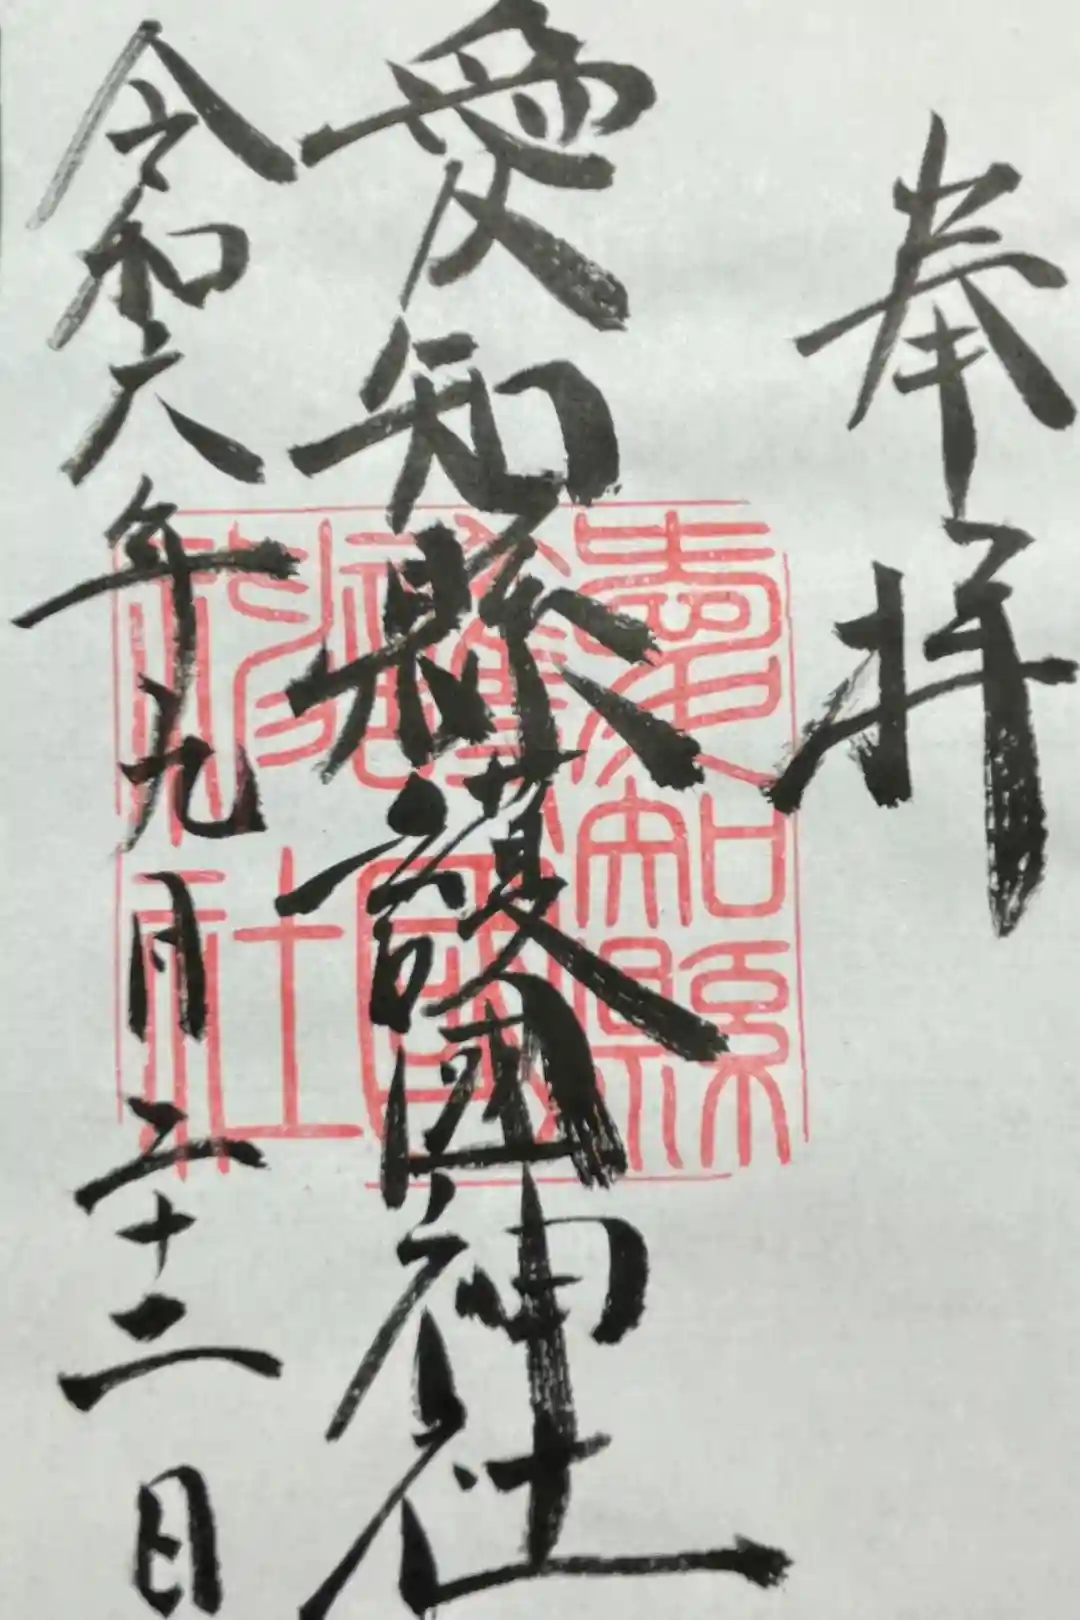 奉拝
愛知縣護國神社
愛知縣護國神社
令和六年九月二十二日